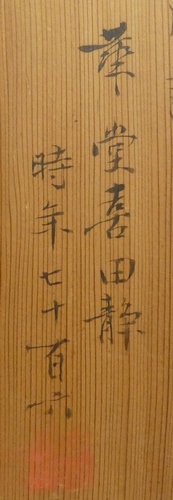 華堂喜田静
時年七十百六